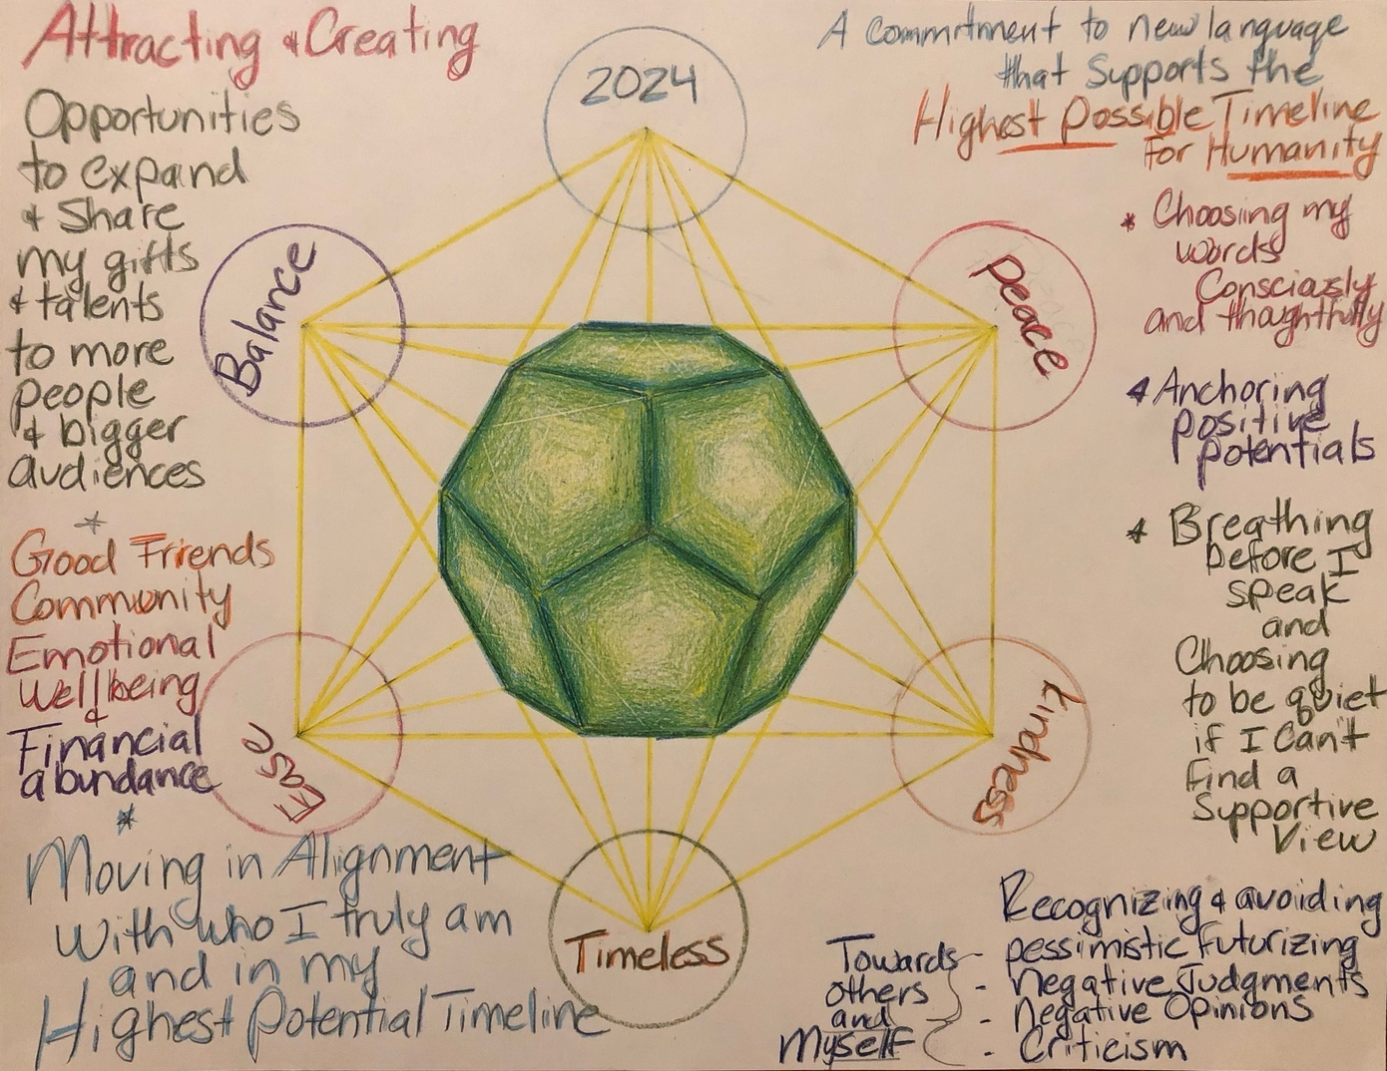 Attracting & Creating
Opportunities
to expand
& Share
my gifts
& talents
to more
people
& bigger
audiences
*
Good Friends
Community
Emotional
Wellbeing
&
Financial
abundance
*
Moving in Alignment
With who I truly am
and in my
Highest Potential Timeline
2024
Balance
Peace
Ease
Kindness
Timeless
A commitment to new language
that Supports the
Highest Possible Timeline
For Humanity
* Choosing my
words
Consciously
and thoughtfully
* Anchoring
positive
potentials
* Breathing
before I
speak
and
Choosing
to be quiet
if I Can't
find a
Supportive
View
Recognizing & avoiding
Towards
others
and
Myself
- pessimistic futurizing
- Negative Judgments
- Negative Opinions
- Criticism